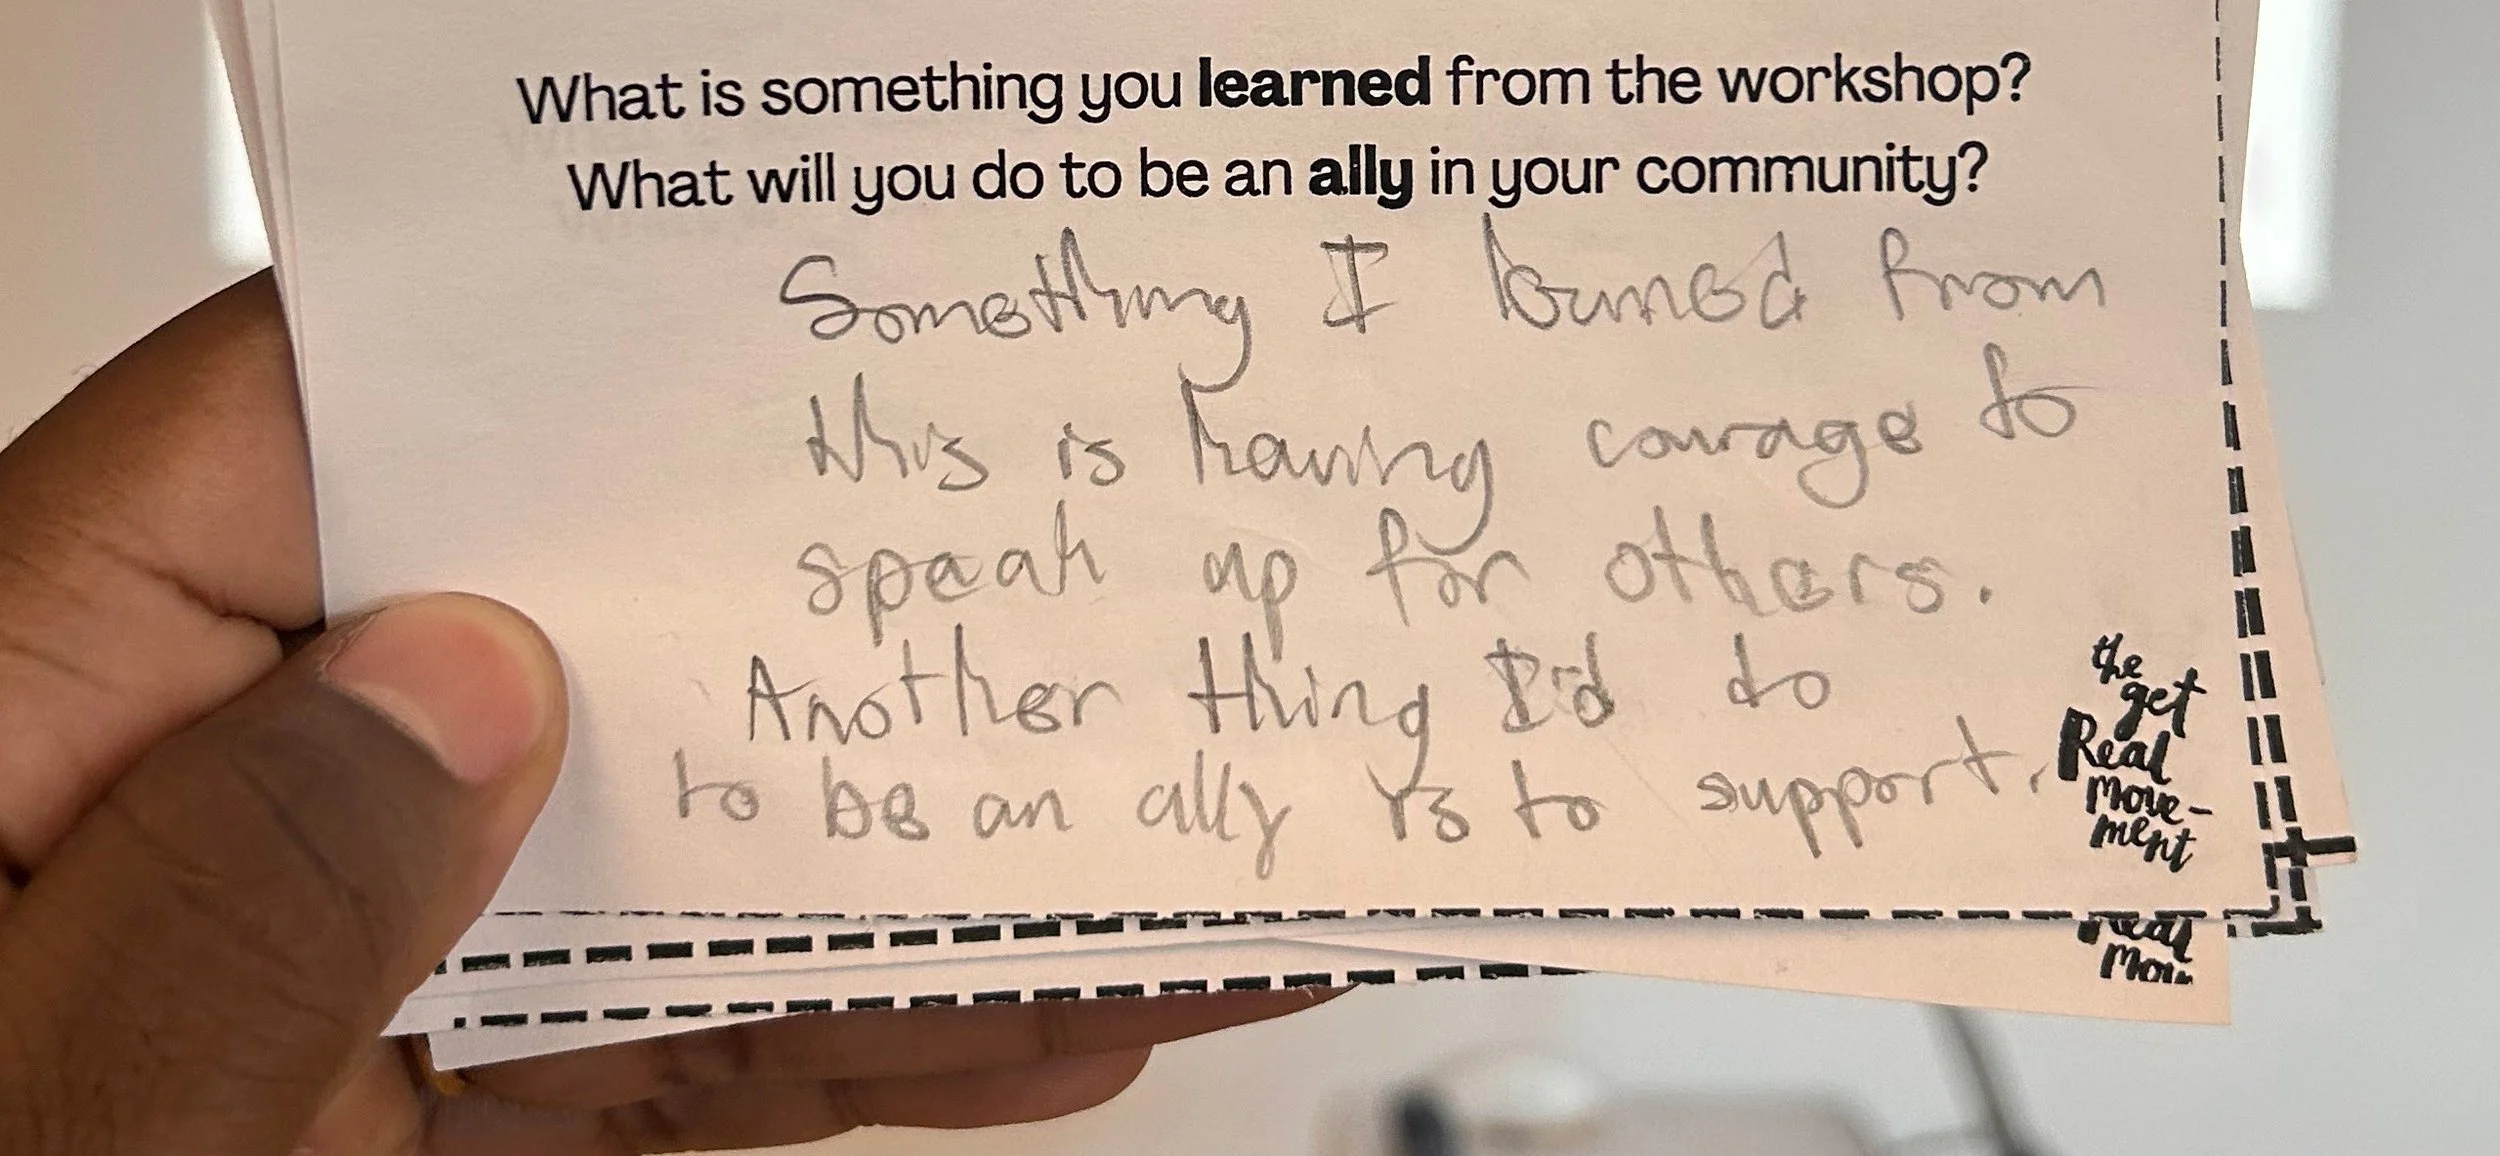 What is something you learned from the workshop?
What will you do to be an ally in your community?
Something I learned from
this is having courage to
speak up for others.
Another thing I'd do
to be an ally is to support.
the
get
Real
Move-
ment
Real
Mov